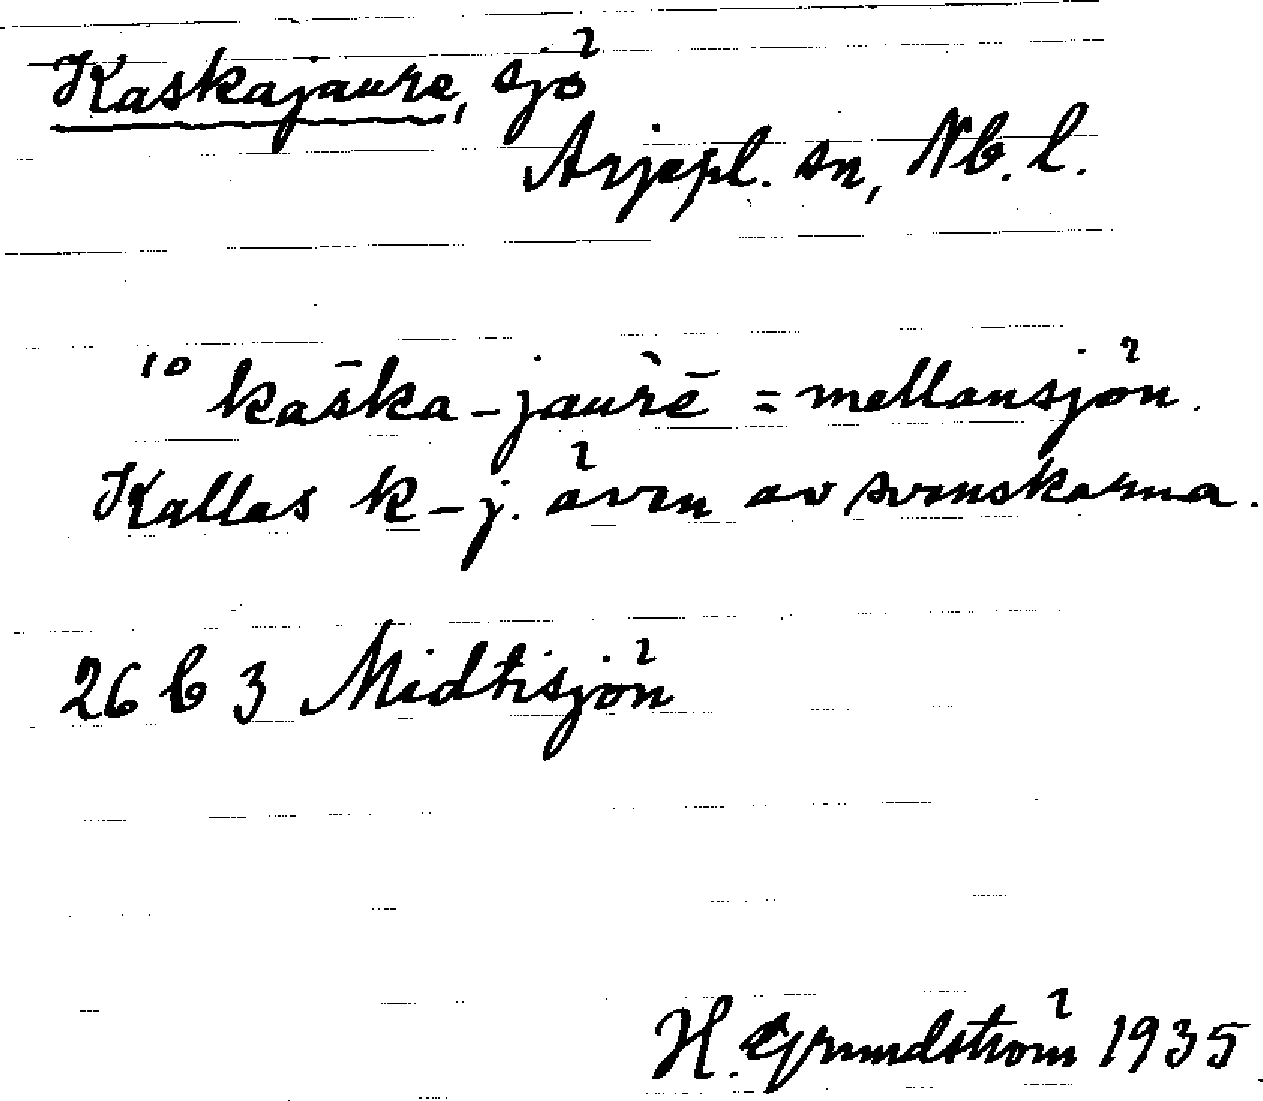 Kaskajaure, sjö
Arjepl. sn, Nb. l.
10 kāska-jaùrē = mellansjön.
Kallas k-j. även av svenskarna.
26 C 3 Midtisjön
H. Grundström 1935